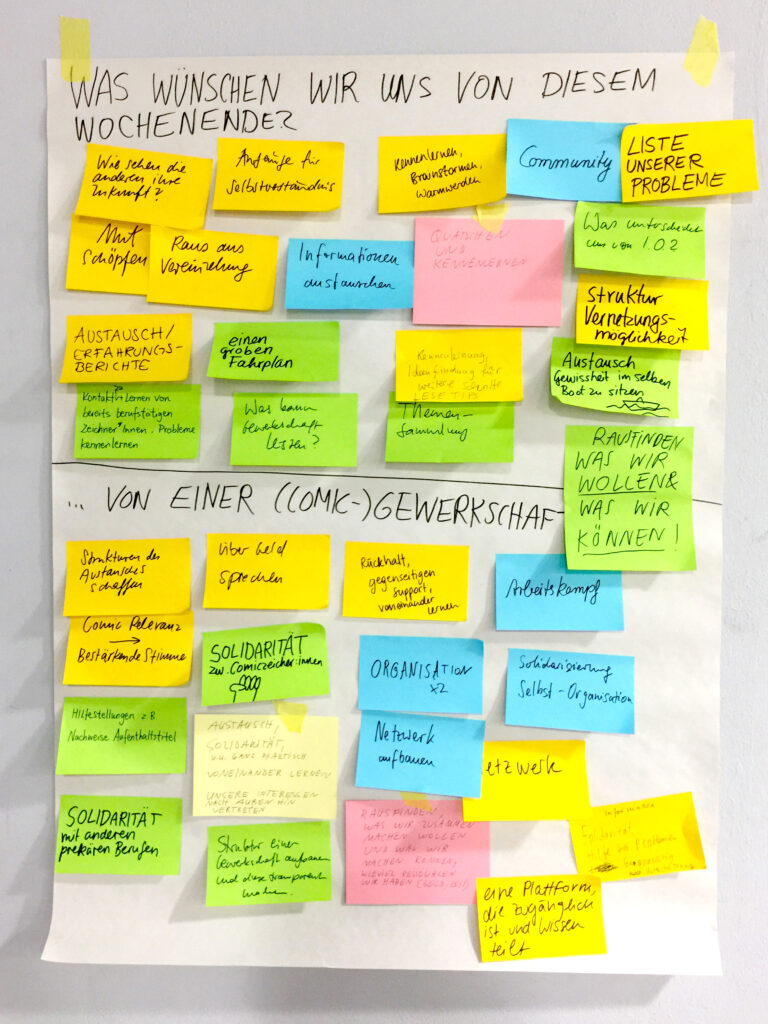 WAS WÜNSCHEN WIR UNS VON DIESEM
WOCHENENDE?
Wie sehen die
anderen ihre
Zukunft?
Anfänge für
Selbstverständnis
Kennenlernen,
Brainstormen,
Warmwerden
Community
LISTE
UNSERER
PROBLEME
Mut
schöpfen
Raus aus
Vereinzelung
Informationen
austauschen
QUATSCHEN
UND
KENNENLERNEN
Was unterscheidet
uns von I.O.?
Struktur
Vernetzungs-
möglichkeit
AUSTAUSCH/
ERFAHRUNGS-
BERICHTE
einen
groben
Fahrplan
Kennenlernung,
Ideenfindung für
weitere Schritte
LESETIPS
Austausch
Gewissheit im selben
Boot zu sitzen
Kontakt + Lernen von
bereits berufstätigen
Zeichner*innen. Probleme
kennenlernen
Was kann
Gewerkschaft
leisten?
Themen-
sammlung
RAUSFINDEN
WAS WIR
WOLLEN &
WAS WIR
KÖNNEN!
... VON EINER (COMIC-)GEWERKSCHAF
Strukturen des
Austausches
schaffen
Über Geld
sprechen
Rückhalt,
gegenseitigen
Support,
voneinander
lernen
Arbeitskampf
Comic Relevanz
→
Bestärkende Stimme
SOLIDARITÄT
zw. Comiczeicher:innen
ORGANISATION
x2
Solidarisierung
Selbst-Organisation
Hilfestellungen z.B
Nachweise Aufenthaltstitel
AUSTAUSCH,
SOLIDARITÄT,
u.u. GANZ PRAKTISCH
VONEINANDER LERNEN
UNSERE INTERESSEN
NACH AUßEN HIN
VERTRETEN
Netzwerk
aufbauen
etzwerk
SOLIDARITÄT
mit anderen
prekären Berufen
Struktur einer
Gewerkschaft aufbauen
und diese transparent
machen.
RAUSFINDEN,
WAS WIR ZUSAMMEN
MACHEN WOLLEN
UND WAS WIR
MACHEN KÖNNEN,
WIEVIEL RESSOURCEN
WIR HABEN
Information
Solidarität
Hilfe bei Problemen
eine Plattform,
die zugänglich
ist und Wissen
teilt